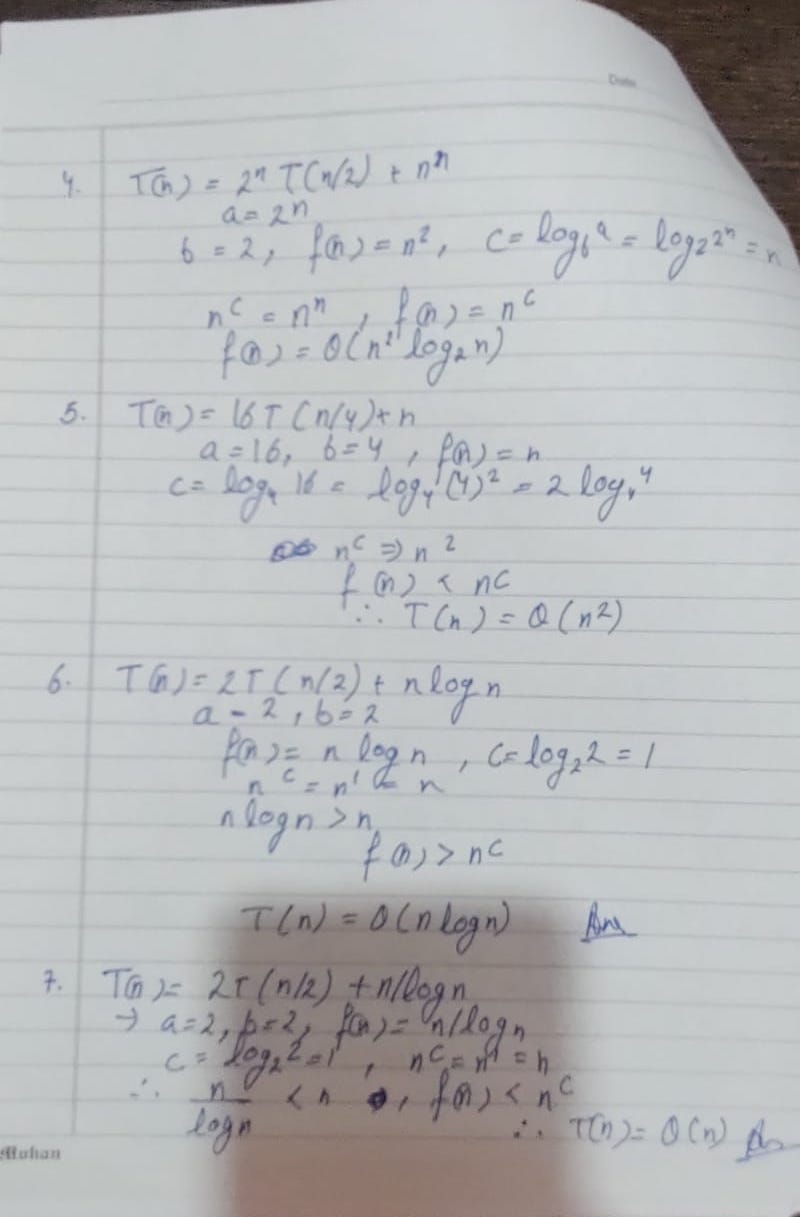 Date
4. T(n) = 2ⁿ T(n/2) + nⁿ
a = 2ⁿ
b = 2, f(n) = n², c = log_b a = log₂ 2ⁿ = n
n^c = nⁿ, f(n) = n^c
f(n) = θ(n² log₂ n)
5. T(n) = 16T(n/4) + n
a = 16, b = 4, f(n) = n
c = log₄ 16 = log₄ (4)² = 2 log₄ 4
n^c ⇒ n²
f(n) < n^c
∴ T(n) = θ(n²)
6. T(n) = 2T(n/2) + n log n
a = 2, b = 2
f(n) = n log n, c = log₂ 2 = 1
n^c = n¹ = n
n log n > n
f(n) > n^c
T(n) = θ(n log n) Ans
7. T(n) = 2T(n/2) + n/log n
→ a = 2, b = 2, f(n) = n/log n
c = log₂ 2 = 1, n^c = n¹ = n
∴ n/log n < n, f(n) < n^c
∴ T(n) = θ(n) Ans
Mohan